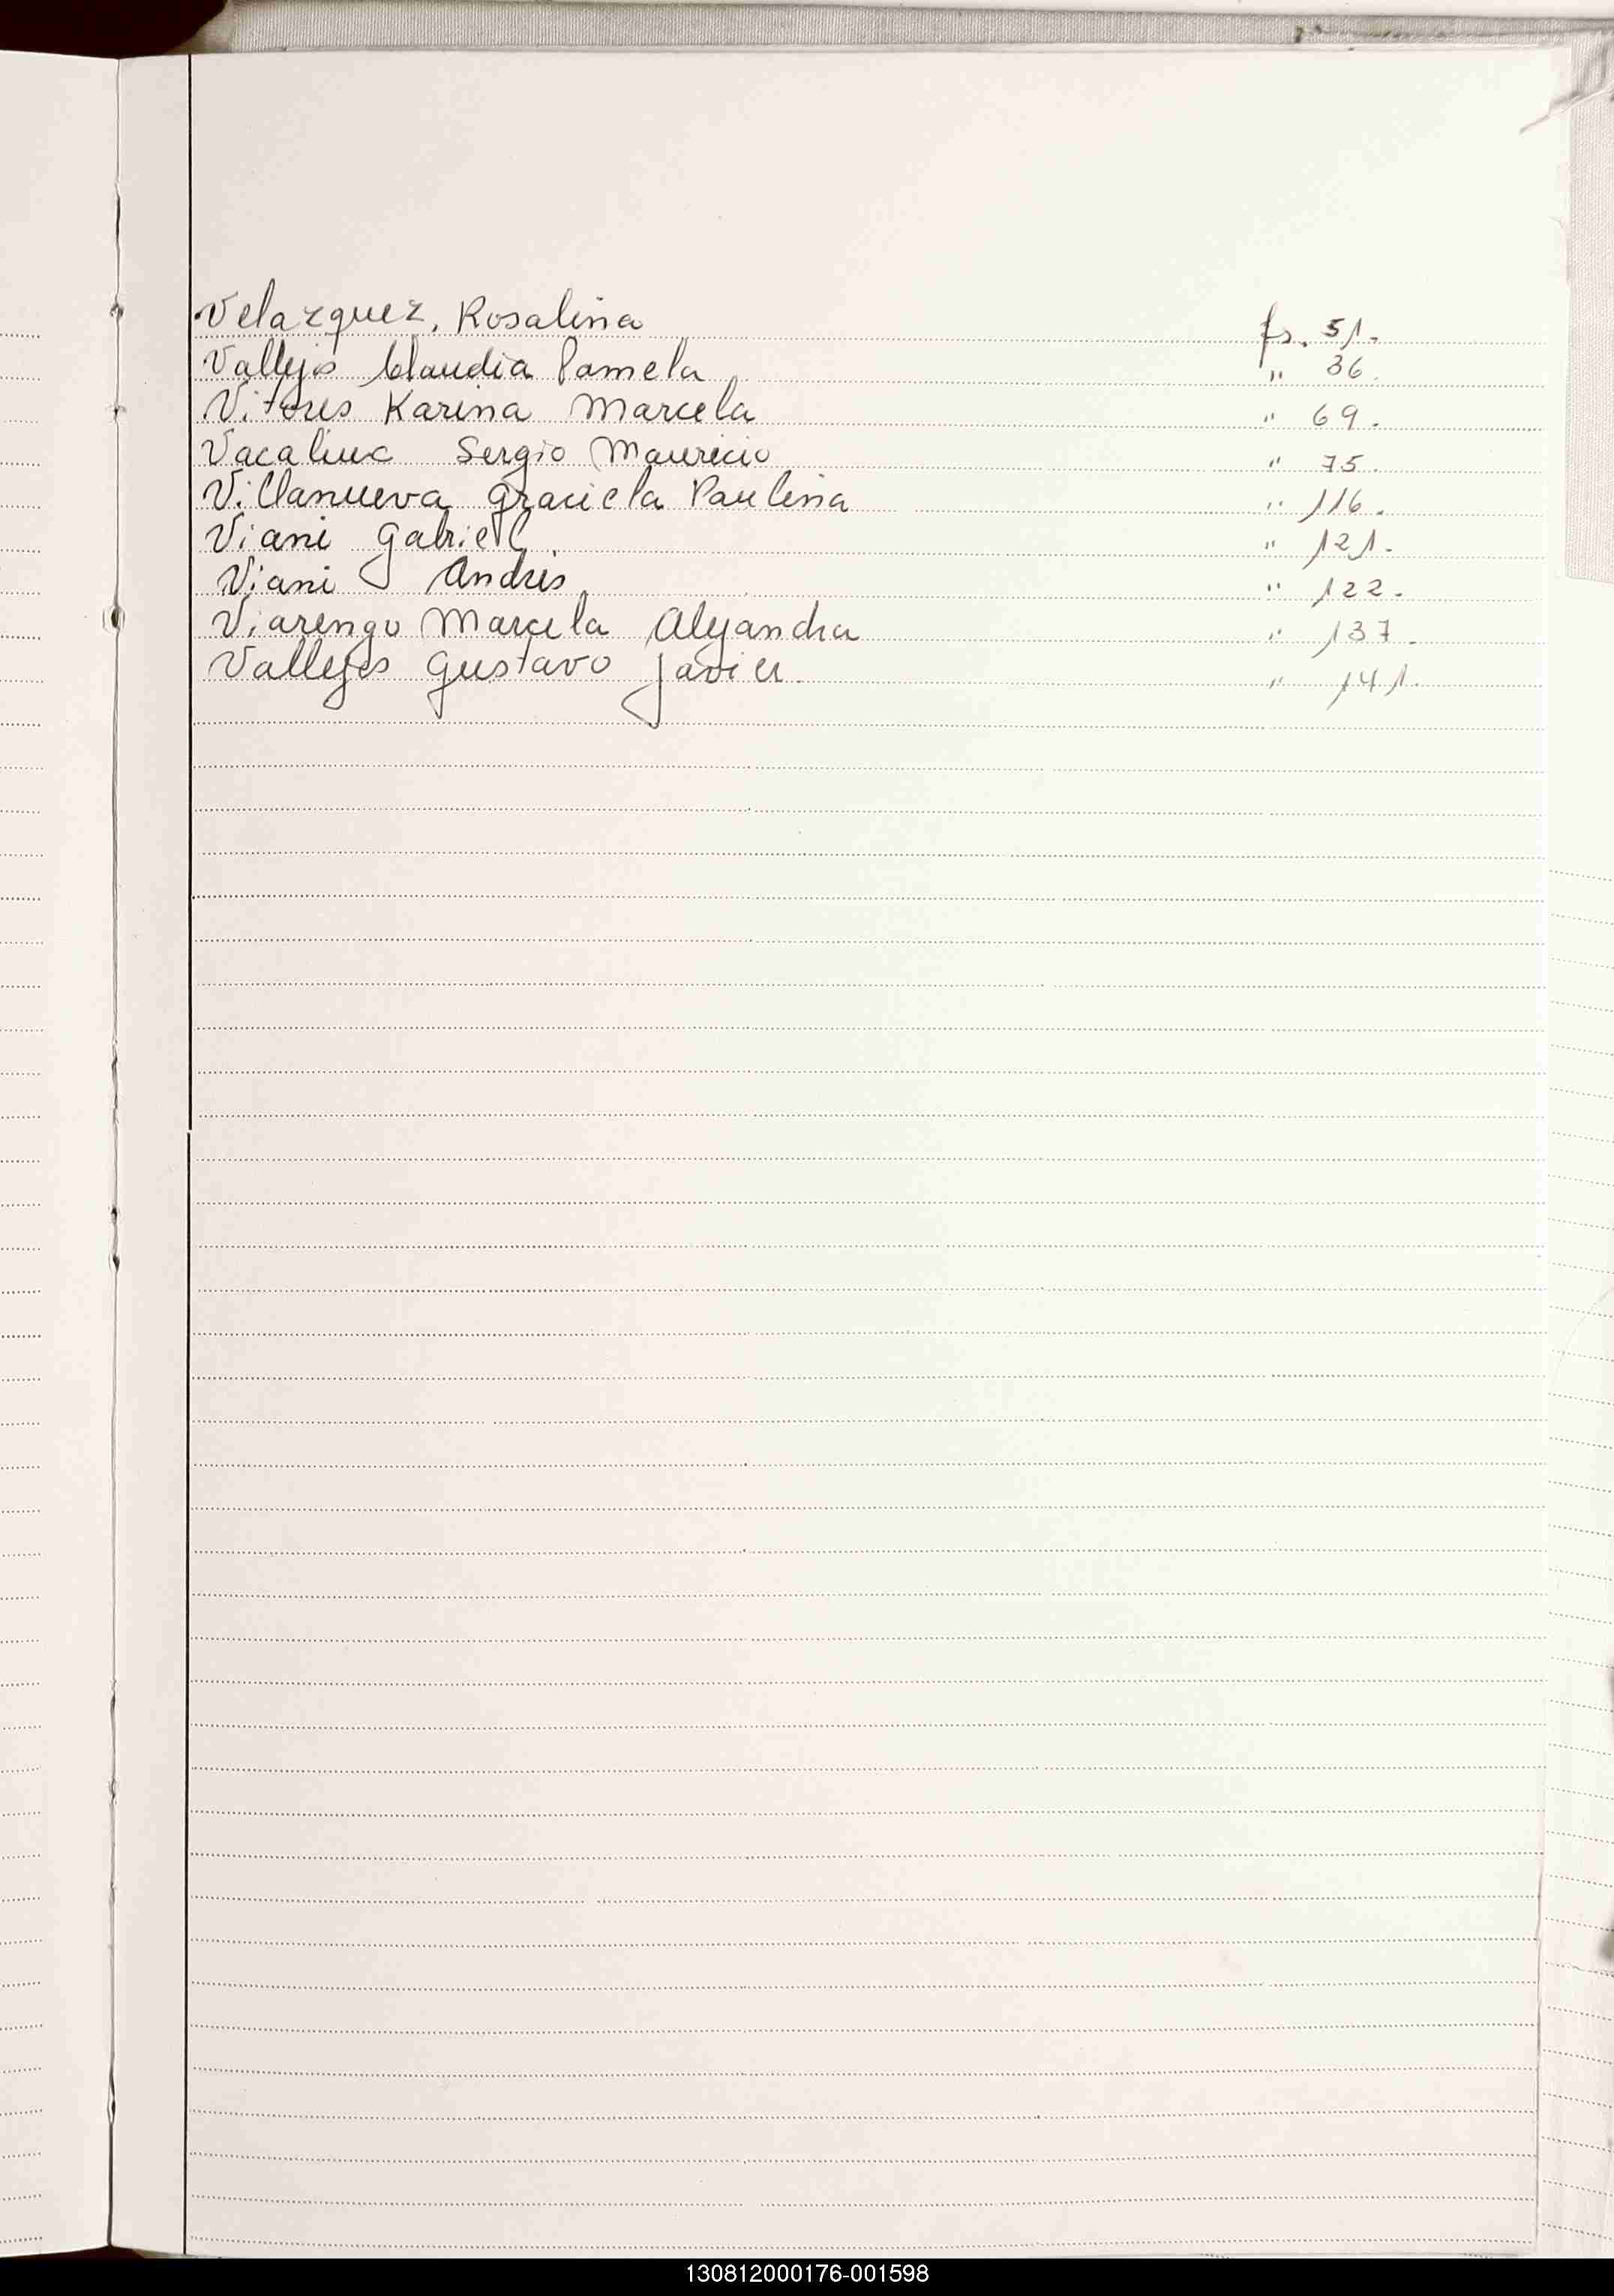 Velazquez, Rosalina fs. 51.
Vallejo Claudia Pamela " 36.
Vitores Karina Marcela " 69.
Sergio Mauricio " 75.
Villanueva Graciela Paulina " 116.
Viani Gabriel. " 121.
Viani Andres " 122.
Viarengo Marcela Alejandra " 137.
Vallejos Gustavo Javier. " 141.
130812000176-001598